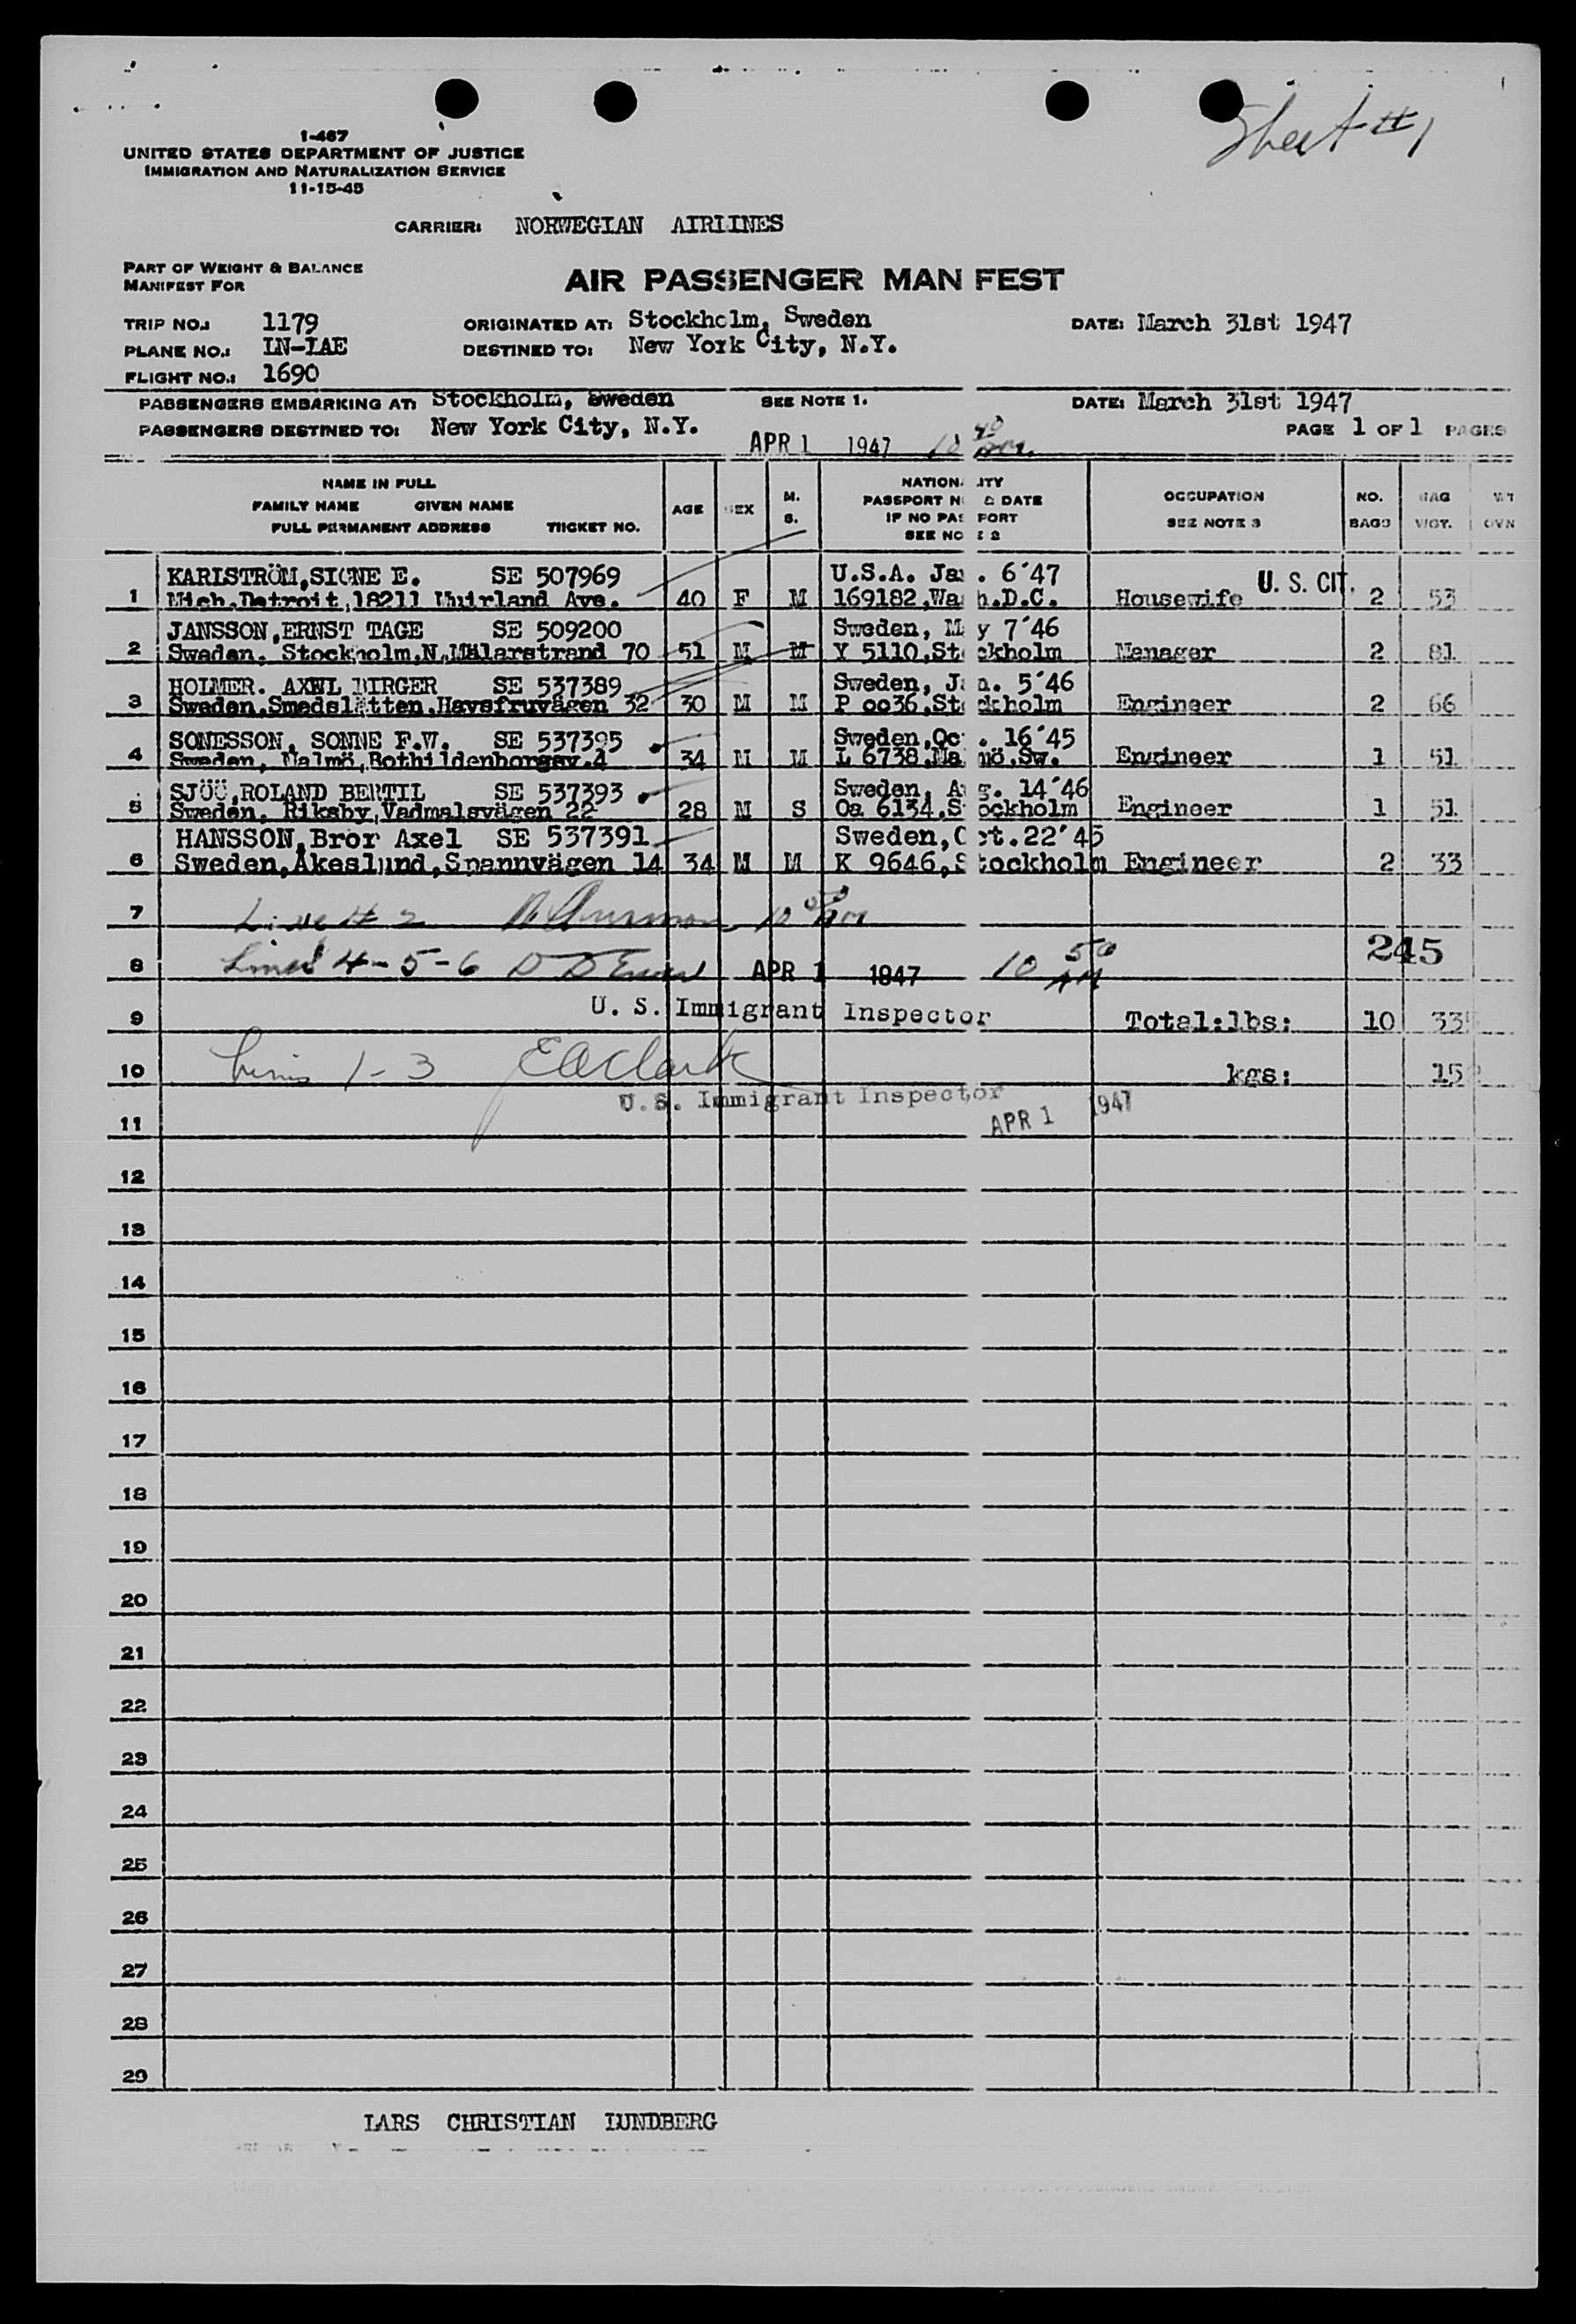 Sheet #1
1-467
UNITED STATES DEPARTMENT OF JUSTICE
IMMIGRATION AND NATURALIZATION SERVICE
11-15-45
CARRIER: NORWEGIAN AIRLINES
PART OF WEIGHT & BALANCE
MANIFEST FOR
AIR PASSENGER MAN FEST
TRIP NO.: 1179 ORIGINATED AT: Stockholm, Sweden DATE: March 31st 1947
PLANE NO.: LN-IAE DESTINED TO: New York City, N.Y.
FLIGHT NO.: 1690
PASSENGERS EMBARKING AT: Stockholm, Sweden SEE NOTE 1. DATE: March 31st 1947
PASSENGERS DESTINED TO: New York City, N.Y. PAGE 1 OF 1 PAGES
APR 1 1947
NAME IN FULL
FAMILY NAME GIVEN NAME
FULL PERMANENT ADDRESS TICKET NO.
AGE SEX M. S.
NATIONA ITY
PASSPORT N & DATE
IF NO PAS PORT
SEE NO E 2
OCCUPATION
SEE NOTE 3
NO. BAGS
BAG WGT.
KARLSTRÖM,SIGNE E. SE 507969 U.S.A. Jan. 6'47
1 Mich.Detroit,18211 Muirland Ave. 40 F M 169182,Wash.D.C. Housewife U. S. CIT. 2 53
JANSSON,ERNST TAGE SE 509200 Sweden, May 7'46
2 Sweden. Stockholm,N.Mälarstrand 70 51 M M Y 5110,Stockholm Manager 2 81
HOLMER. AXEL BIRGER SE 537389 Sweden, Jan. 5'46
3 Sweden,Smedslätten,Havsfruvägen 32 30 M M P oo36,Stockholm Engineer 2 66
SONESSON, SONNE F.W. SE 537395 Sweden,Oct. 16'45
4 Sweden, Malmö,Rothildenborgsv.4 34 M M L 6738,Malmö,Sw. Engineer 1 51
SJÖÖ,ROLAND BERTIL SE 537393 Sweden, Aug. 14'46
5 Sweden, Riksby,Vadmalsvägen 22 28 M S Oa 6134,Stockholm Engineer 1 51
HANSSON,Bror Axel SE 537391 Sweden,Oct.22'45
6 Sweden,Åkeslund,Spannvägen 14 34 M M K 9646,Stockholm Engineer 2 33
7 Line # 2
8 Lines 4-5-6 APR 1 1947 10 50 AM 245
U. S. Immigrant Inspector
9 Total:lbs: 10 335
10 Lines 1-3 EAClark kgs: 15
U.S. Immigrant Inspector
11 APR 1 1947
12
13
14
15
16
17
18
19
20
21
22
23
24
25
26
27
28
29
LARS CHRISTIAN LUNDBERG